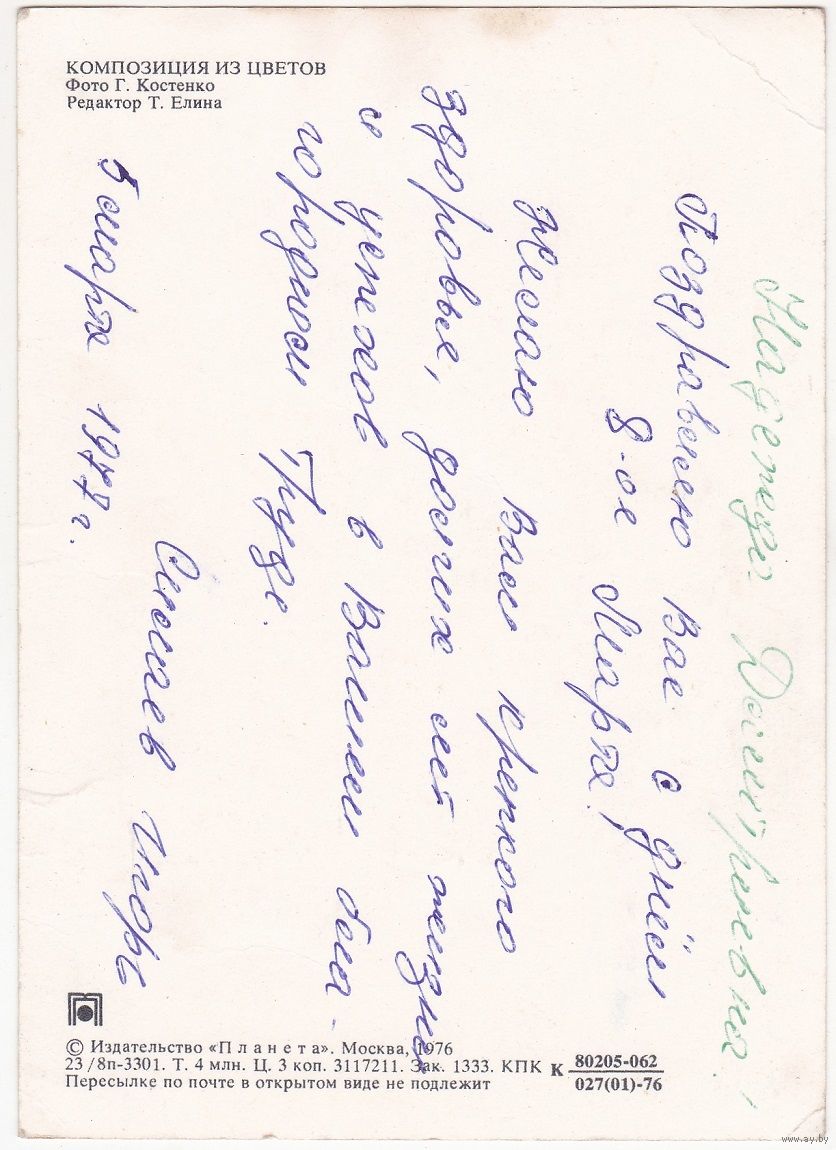 КОМПОЗИЦИЯ ИЗ ЦВЕТОВ
Фото Г. Костенко
Редактор Т. Елина
Надежда Дмитриевна!
Поздравляю Вас с днём
8-ое Марта!
Желаю Вам крепкого
здоровья, долгих лет жизни
и успехов в Вашем бла-
городном труде.
5 марта 1977 г.
Игорь
© Издательство «Планета». Москва, 1976
23/8п-3301. Т. 4 млн. Ц. 3 коп. 3117211. Зак. 1333. КПК К 80205-062
027(01)-76
Пересылке по почте в открытом виде не подлежит
www.ay.by